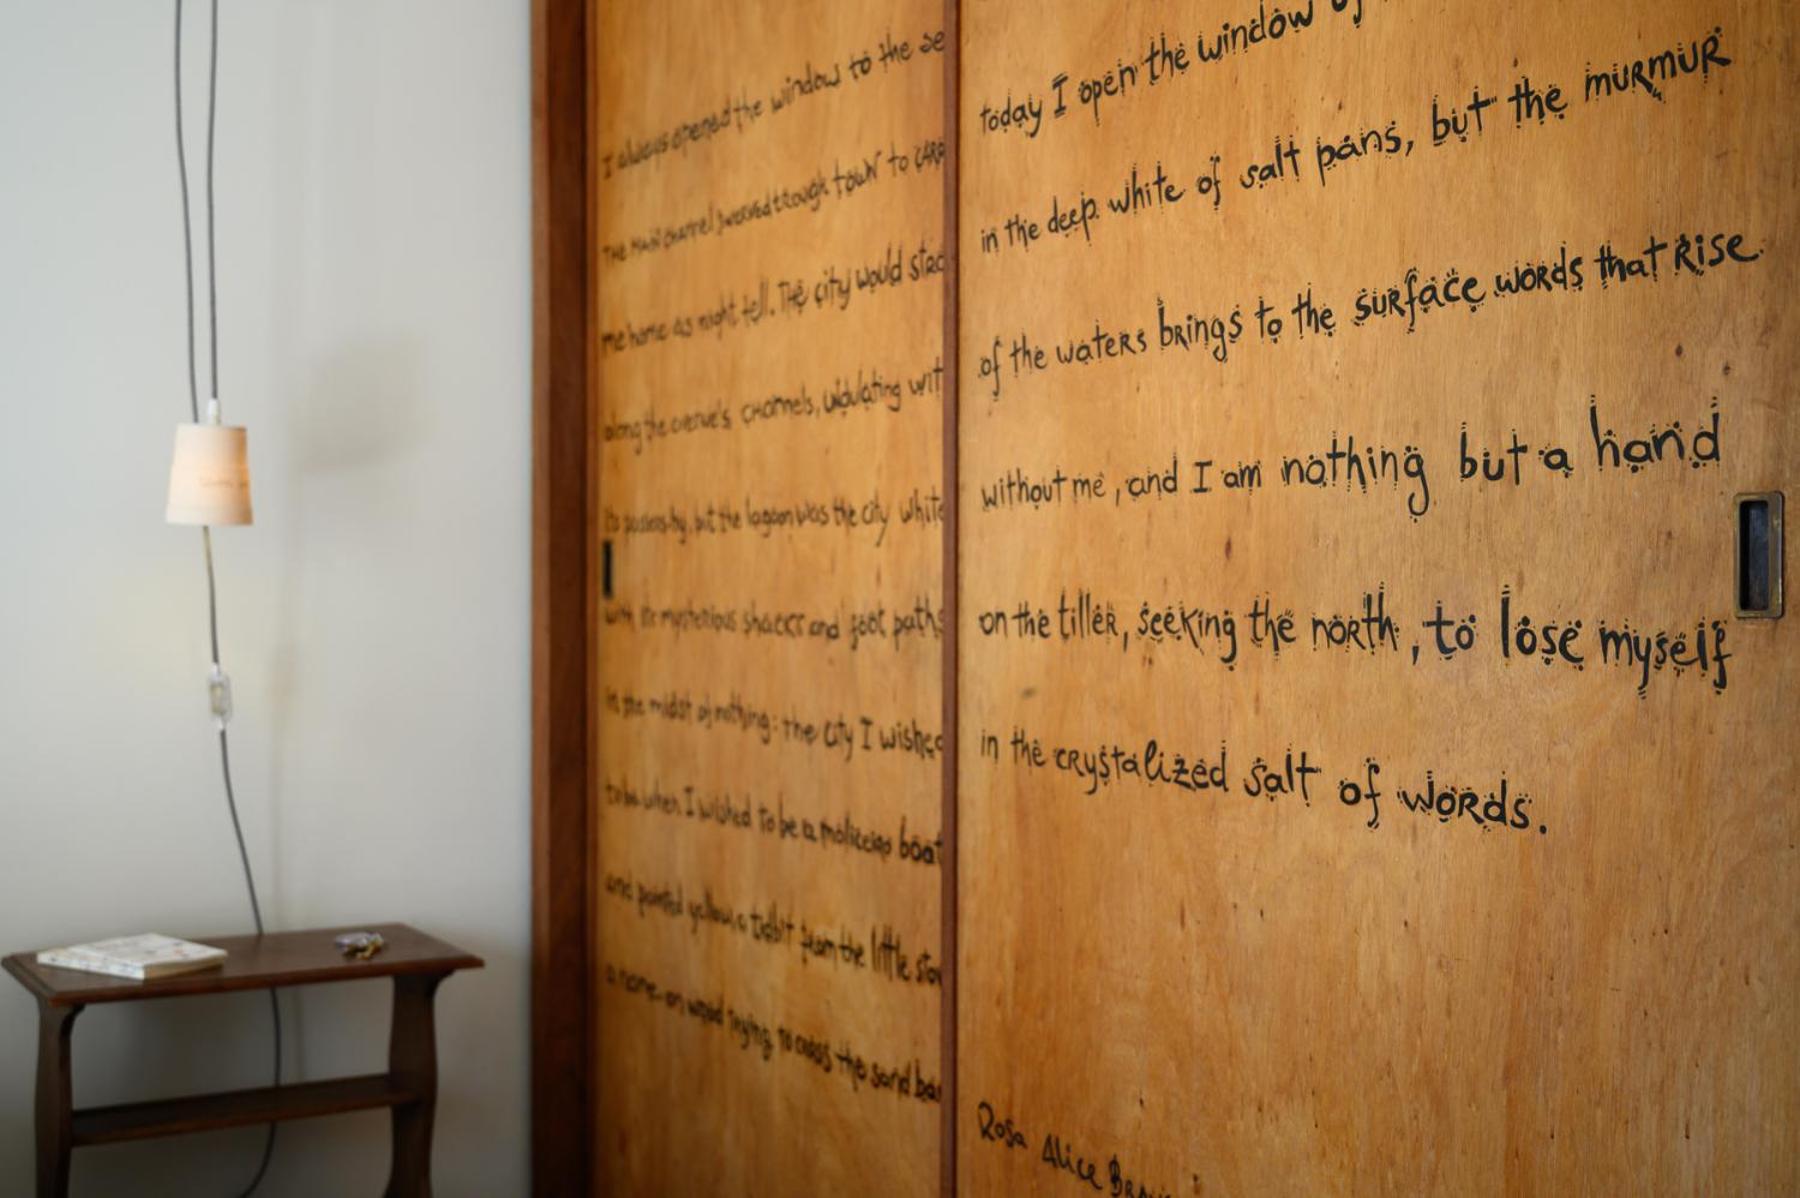 I always opened the window to the se
The main channel swerved trough town to carr
me home as night fell. The city would stre
along the avenue's channels, undulating wit
its passers-by, but the lagoon was the city white
with its mysterious shacks and foot paths
in the midst of nothing: the city I wished
to be when I wished to be a moliceiro boat
and painted yellow, a tidbit from the little sto
a name on wood trying to cross the sand ba
today I open the window of
in the deep white of salt pans, but the murmur
of the waters brings to the surface words that rise
without me, and I am nothing but a hand
on the tiller, seeking the north, to lose myself
in the crystalized salt of words.
Rosa Alice